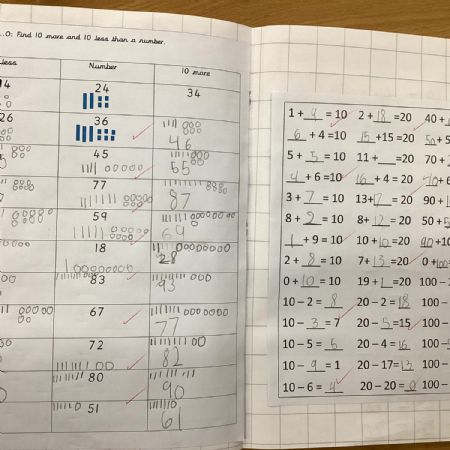 ..O: Find 10 more and 10 less than a number.
less Number 10 more
14 24 34
26 36 46
45 55
77 87
59 69
18 28
83 93
67 77
72 82
80 90
51 61
1 + 9 = 10 2 + 18 = 20 40 +
6 + 4 = 10 15 + 15 = 20 50 + 5
5 + 5 = 10 11 + __ = 20 70 +
4 + 6 = 10 16 + 4 = 20 + 6
3 + 7 = 10 13 + 7 = 20 90 + 1
8 + 2 = 10 8 + 12 = 20 50 + 5
1 + 9 = 10 10 + 10 = 20 90 + 10
2 + 8 = 10 7 + 13 = 20 0 + 100
0 + 10 = 10 19 + 1 = 20 100 -
10 - 2 = 8 20 - 2 = 18 100 -
10 - 3 = 7 20 - 5 = 15 100 -
10 - 5 = 5 20 - 4 = 16 100 -
10 - 9 = 1 20 - 17 = 13 100 -
10 - 6 = 4 20 - 20 = 0 100 -